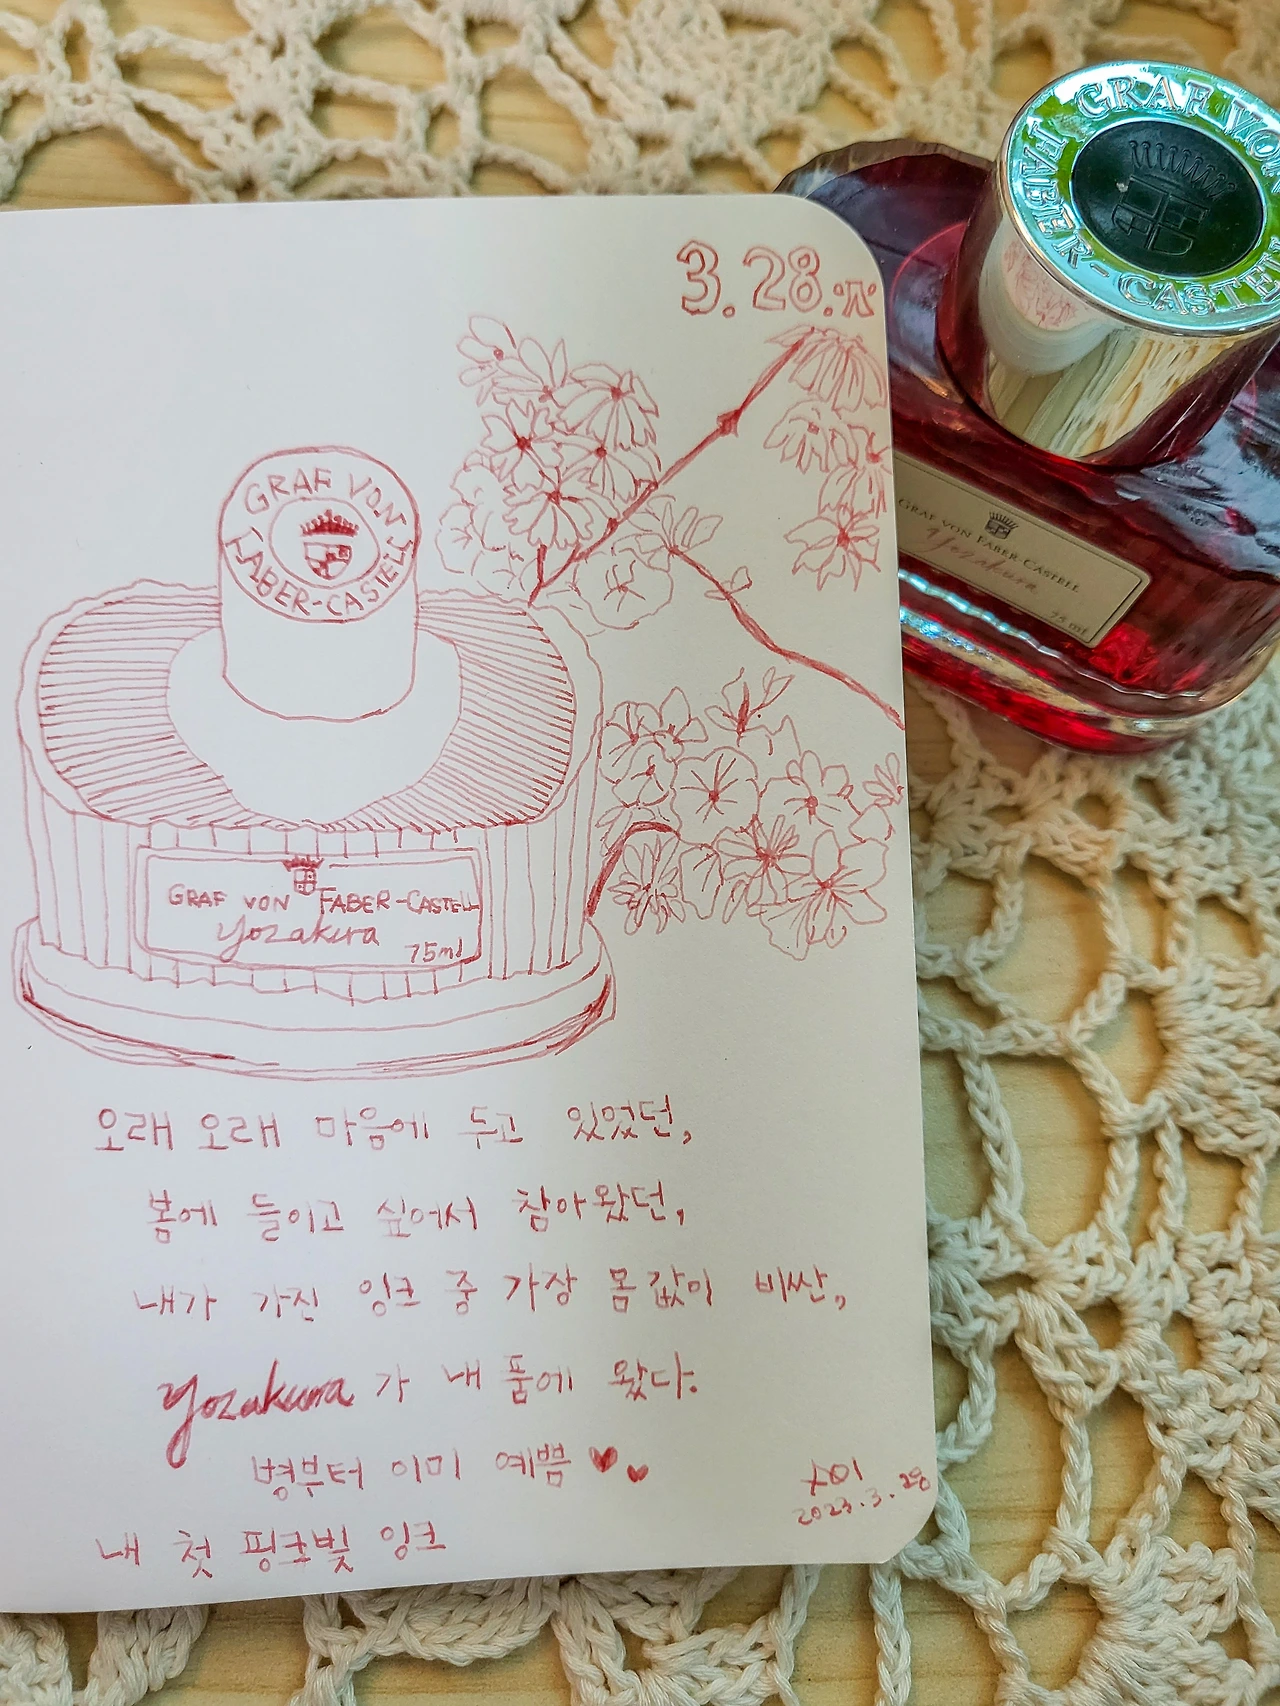 3.28.火
GRAF VON
FABER-CASTELL
GRAF VON FABER-CASTELL
Yozakura
75ml
오래 오래 마음에 두고 있었던,
봄에 들이고 싶어서 참아왔던,
내가 가진 잉크 중 가장 몸값이 비싼,
Yozakura가 내 품에 왔다.
병부터 이미 예쁨 ♥♥
내 첫 핑크빛 잉크
2023.3.28
GRAF VON
FABER-CASTELL
GRAF VON FABER-CASTELL
Yozakura
75 ml